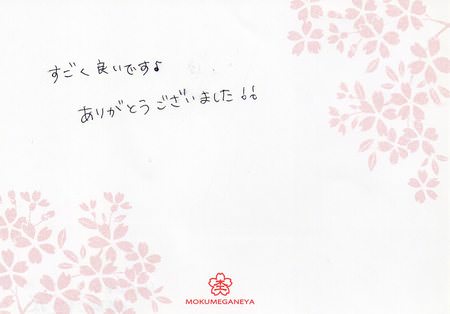 すごく良いです♪
ありがとうございました!!
杢
MOKUMEGANEYA